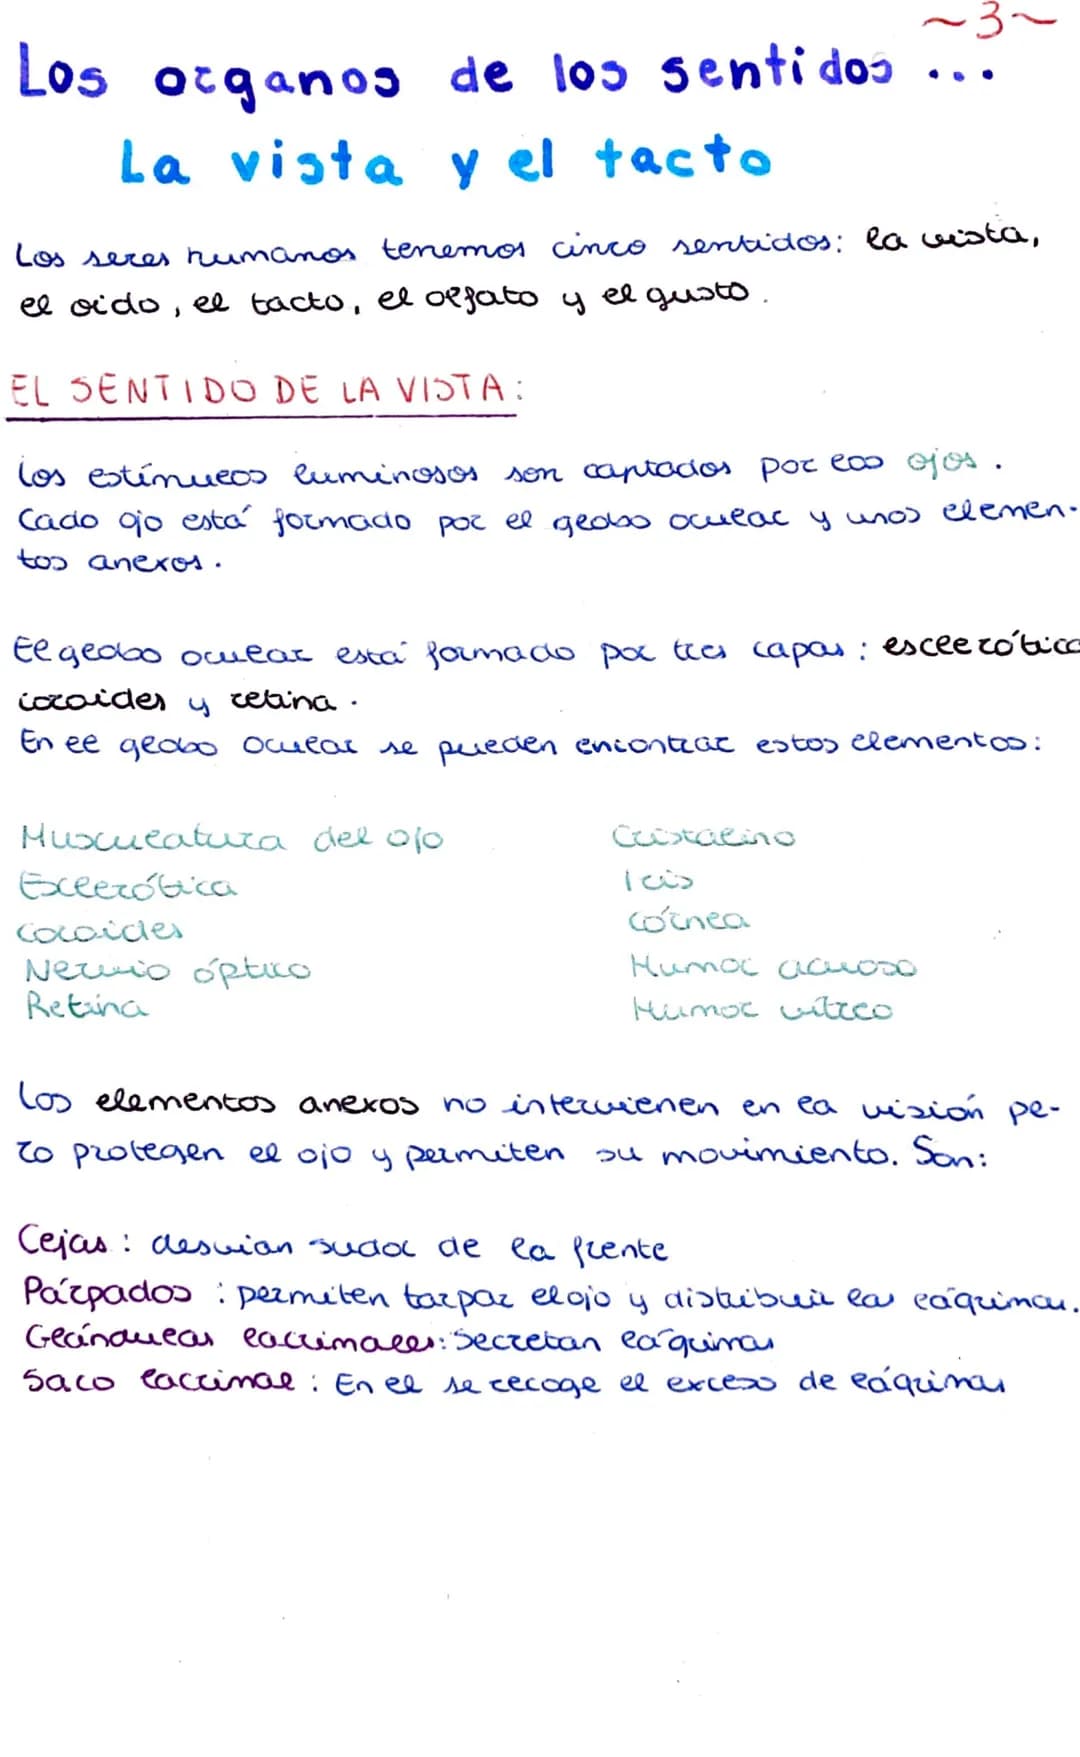 ~3~
Los organos de los sentidos ...
La vista y el tacto
Los seres humanos tenemos cinco sentidos: la vista,
el oido, el tacto, el olfato y el gusto.
EL SENTIDO DE LA VISTA:
Los estímulos luminosos son captados por los ojos.
Cado ojo está formado por el globo ocular y unos elemen-
tos anexos.
El globo ocular está formado por tres capas: esclerótica
coroides y retina.
En el globo ocular se pueden encontrar estos elementos:
Musculatura del ojo
Esclerótica
Coroides
Nervio óptico
Retina
Cristalino
Iris
Córnea
Humor acuoso
Humor vítreo
Los elementos anexos no intervienen en la visión pe-
ro protegen el ojo y permiten su movimiento. Son:
Cejas: desvian sudor de la frente
Párpados: permiten tarpar el ojo y distribuir las lágrimas.
Glándulas lacrimales: Secretan lágrimas
Saco lacrimal: En el se recoge el exceso de lágrimas